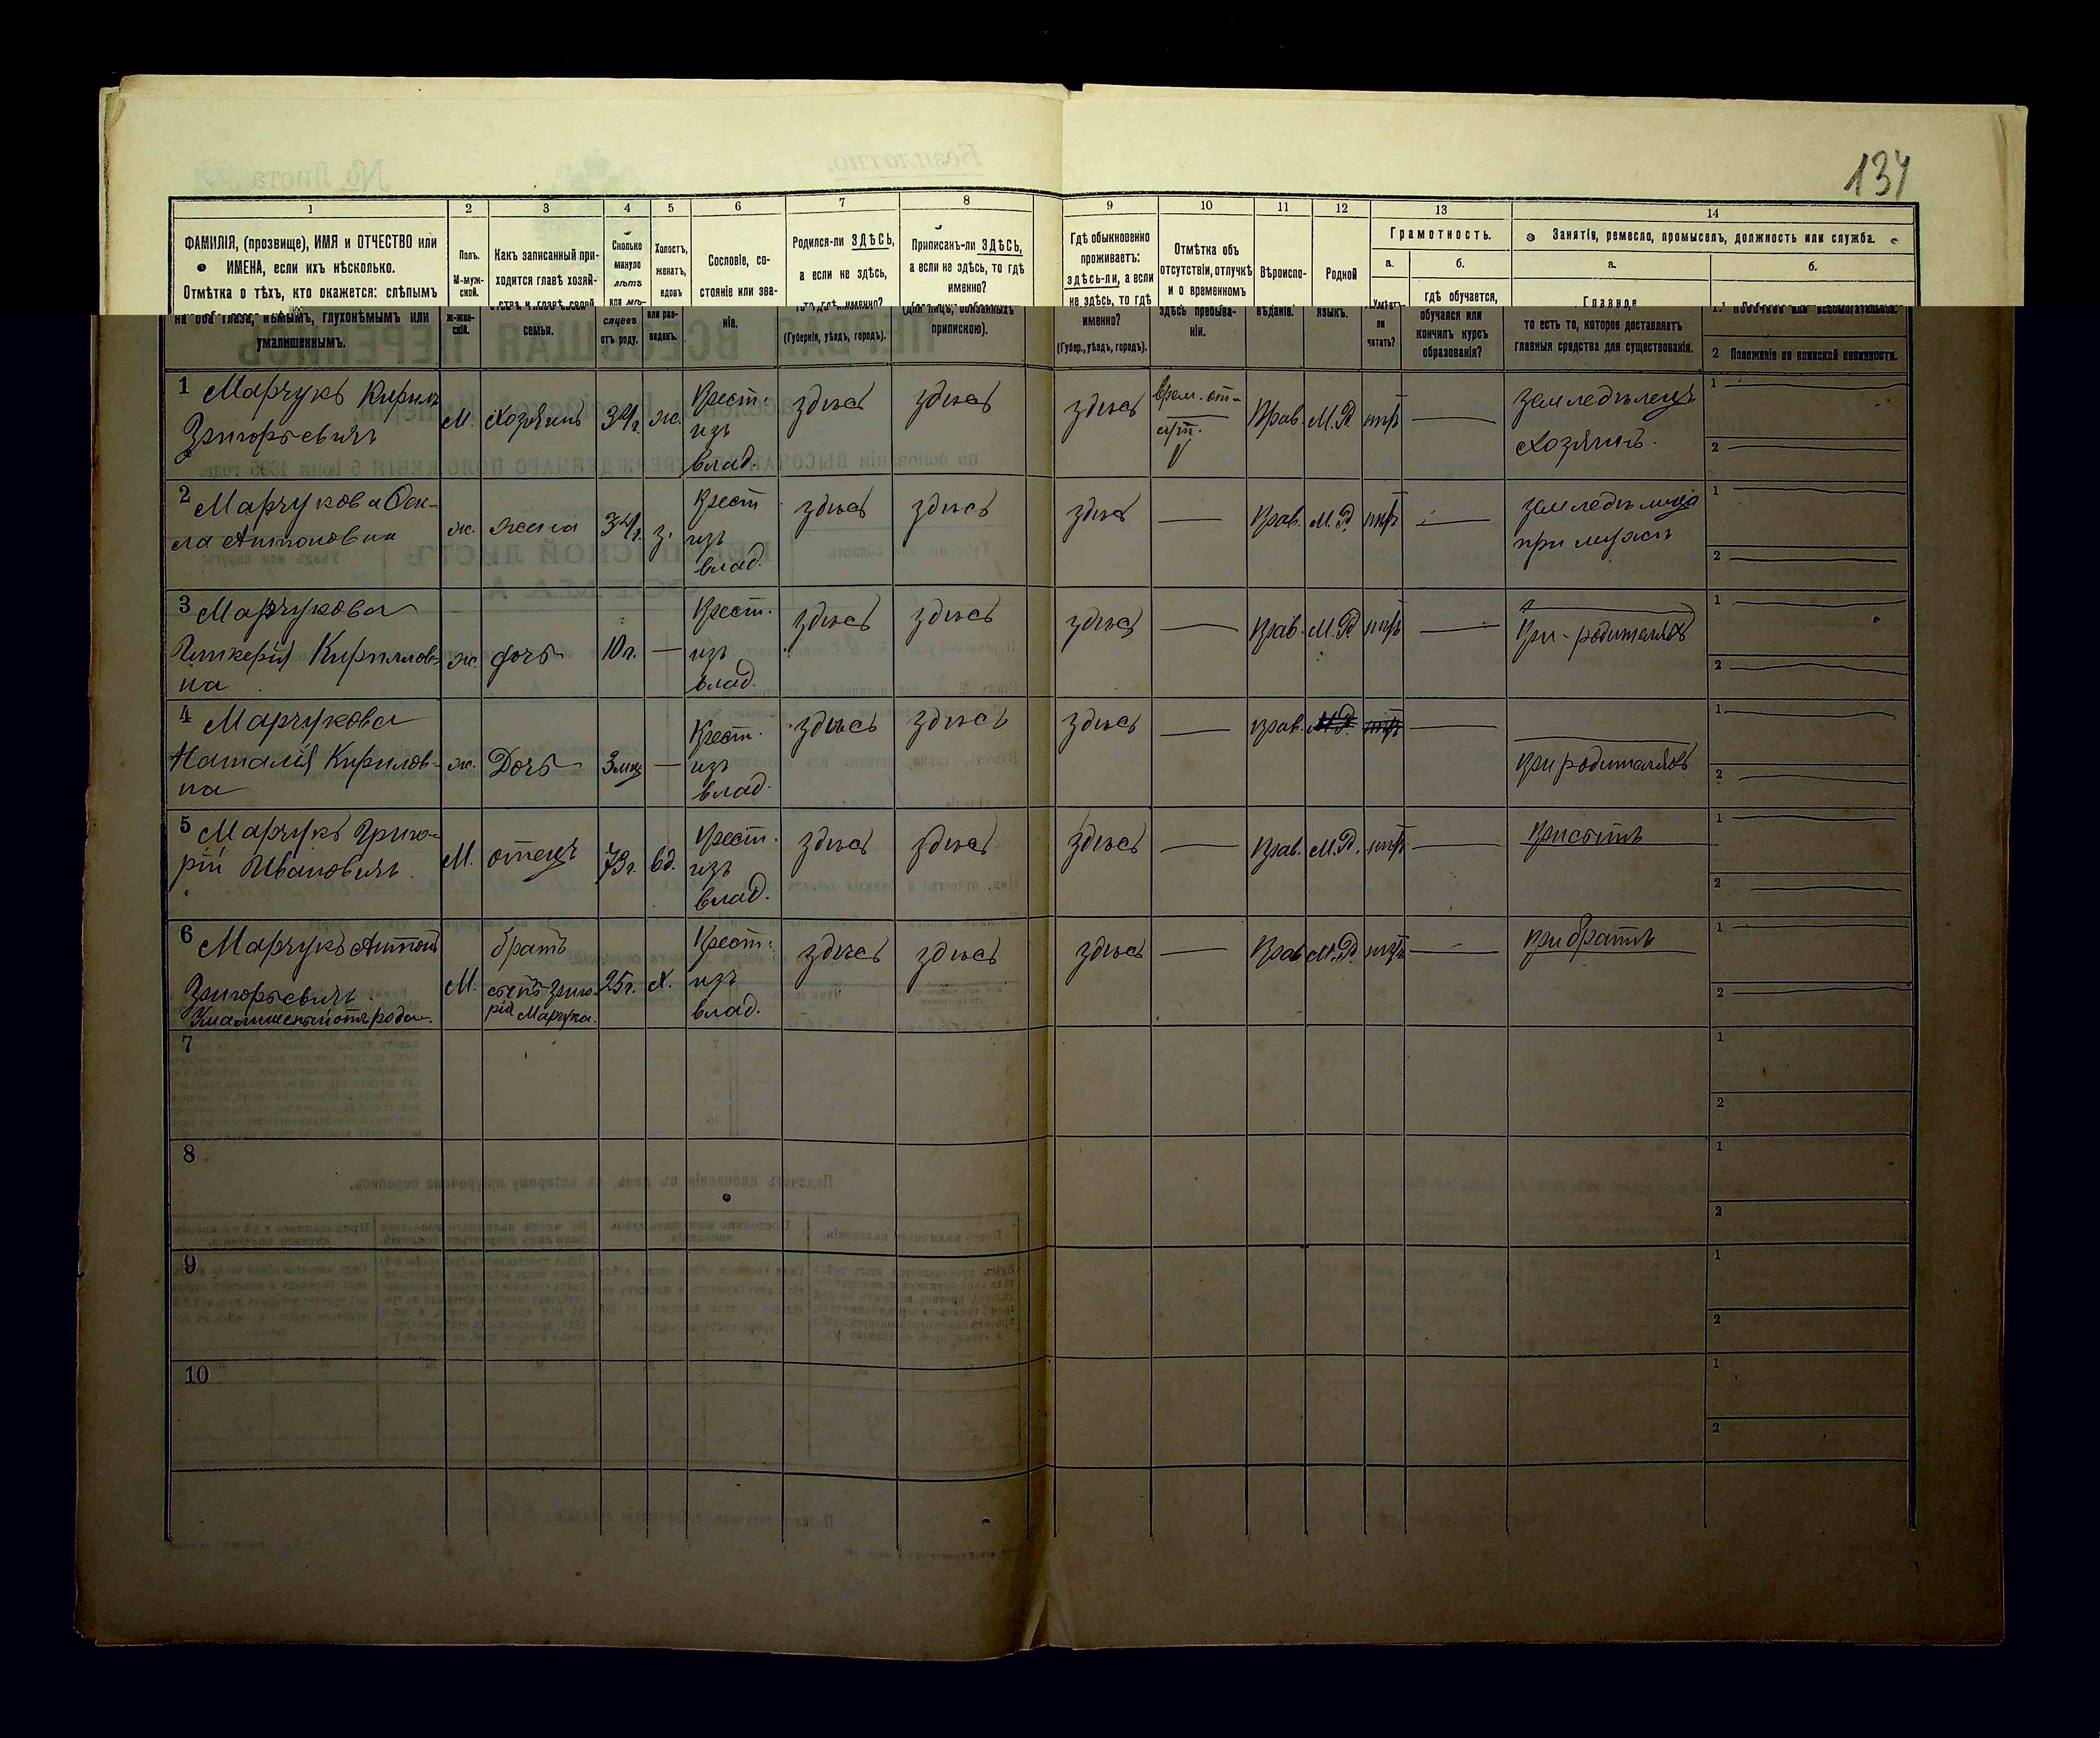 134
1 2 3 4 5 6 7 8 9 10 11 12 13 14
ФАМИЛІЯ, (прозвище), ИМЯ и ОТЧЕСТВО или
ИМЕНА, если ихъ нѣсколько.
Отмѣтка о тѣхъ, кто окажется: слѣпымъ
на оба глаза, нѣмымъ, глухонѣмымъ или
умалишеннымъ.
Полъ.
М-муж-
ской.
ж-жен-
скій.
Какъ записанный при-
ходится главѣ хозяй-
ства и главѣ своей
семьи.
Сколько
минуло
лѣтъ
или мѣ-
сяцевъ
отъ роду.
Холостъ,
женатъ,
вдовъ
или раз-
веденъ.
Сословіе, со-
стояніе или зва-
ніе.
Родился-ли ЗДѢСЬ,
а если не здѣсь,
то гдѣ именно?
(Губернія, уѣздъ, городъ).
Приписанъ-ли ЗДѢСЬ,
а если не здѣсь, то гдѣ
именно?
(для лицъ, обязанныхъ
припискою).
Гдѣ обыкновенно
проживаетъ:
здѣсь-ли, а если
не здѣсь, то гдѣ
именно?
(Губер., уѣздъ, городъ).
Отмѣтка объ
отсутствіи, отлучкѣ
и о временномъ
здѣсь пребыва-
ніи.
Вѣроиспо-
вѣданіе.
Родной
языкъ.
Грамотность.
а.
Умѣетъ-
ли
читать?
б.
гдѣ обучается,
обучался или
кончилъ курсъ
образованія?
Занятіе, ремесло, промыселъ, должность или служба.
а.
Главное,
то есть то, которое доставляетъ
главныя средства для существованія.
б.
1. Побочное или вспомогательное.
2 Положеніе по воинской повинности.
1 Марчукъ Кирилъ
Григорьевичъ
М. Хозяинъ 34 г. ж.
Крест.
изъ
влад.
здѣсь здѣсь здѣсь
Врем. от-
Прав. М.Р. нѣтъ —
земледѣлецъ
хозяинъ.
1
2
2 Марчукова
Антоновна
ж. жена 34 г. з.
Крест
изъ
влад.
здѣсь здѣсь здѣсь — Прав. М.Р. нѣтъ —
при мужѣ
1
2
3 Марчукова
Гликерія Кириллов-
на
ж. дочь 10 г. —
Крест.
изъ
влад.
здѣсь здѣсь здѣсь — Прав. М.Р. нѣтъ —
При-родителяхъ
1
2
4 Марчукова
Наталія Кирилов-
на
ж. Дочь 3 мц —
Крест.
изъ
влад.
здѣсь здѣсь здѣсь — Прав. М.Р. нѣтъ —
при родителяхъ
1
2
5 Марчукъ Григо-
рій Ивановичъ
М. отецъ 73 г. вд.
Крест.
изъ
влад.
здѣсь здѣсь здѣсь — Прав. М.Р. нѣтъ —
при сынѣ
1
2
6 Марчукъ Антонъ
Григорьевичъ
Умалишеный отъ рода.
М.
братъ
сынъ Григо-
рія Марчука.
25 г. Х.
Крест.
изъ
влад.
здѣсь здѣсь здѣсь — Прав М.Р. нѣтъ —
при братѣ
1
2
7
1
2
8
1
2
9
1
2
10
1
2